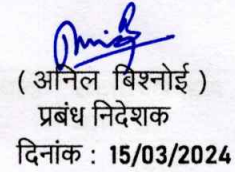 ( अनिल बिश्नोई )
प्रबंध निदेशक
दिनांक : 15/03/2024